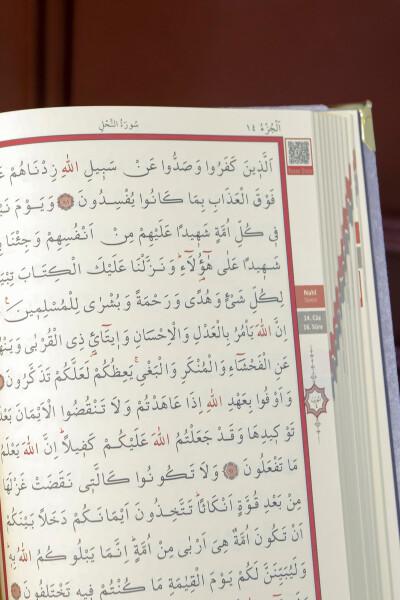 سُورَةُ النَّحْلِ
اَلْجُزْءُ ١٤
اَلَّذٖينَ كَفَرُوا وَصَدُّوا عَنْ سَبٖيلِ اللّٰهِ زِدْنَاهُمْ
فَوْقَ الْعَذَابِ بِمَا كَانُوا يُفْسِدُونَ ﴿٨٨﴾ وَيَوْمَ
فٖى كُلِّ اُمَّةٍ شَهٖيدًا عَلَيْهِمْ مِنْ اَنْفُسِهِمْ وَجِئْنَا
شَهٖيدًا عَلٰى هٰٓؤُ۬لَٓاءِ وَنَزَّلْنَا عَلَيْكَ الْكِتَابَ
لِكُلِّ شَىْءٍ وَهُدًى وَرَحْمَةً وَبُشْرٰى لِلْمُسْلِمٖينَ
اِنَّ اللّٰهَ يَاْمُرُ بِالْعَدْلِ وَالْاِحْسَانِ وَاٖيتَٓائِ ذِى الْقُرْبٰى
عَنِ الْفَحْشَٓاءِ وَالْمُنْكَرِ وَالْبَغْىِ يَعِظُكُمْ لَعَلَّكُمْ تَذَكَّرُونَ
وَاَوْفُوا بِعَهْدِ اللّٰهِ اِذَا عَاهَدْتُمْ وَلَا تَنْقُضُوا الْاَيْمَانَ
تَوْكٖيدِهَا وَقَدْ جَعَلْتُمُ اللّٰهَ عَلَيْكُمْ كَفٖيلًا اِنَّ اللّٰهَ يَعْلَمُ
مَا تَفْعَلُونَ ﴿٩١﴾ وَلَا تَكُونُوا كَالَّتٖى نَقَضَتْ غَزْلَهَا
مِنْ بَعْدِ قُوَّةٍ اَنْكَاثًا تَتَّخِذُونَ اَيْمَانَكُمْ دَخَلًا بَيْنَكُمْ
اَنْ تَكُونَ اُمَّةٌ هِىَ اَرْبٰى مِنْ اُمَّةٍ اِنَّمَا يَبْلُوكُمُ اللّٰهُ بِهٖ
وَلَيُبَيِّنَنَّ لَكُمْ يَوْمَ الْقِيٰمَةِ مَا كُنْتُمْ فٖيهِ تَخْتَلِفُونَ
Nahl
Sûresi
14. Cüz
16. Sûre